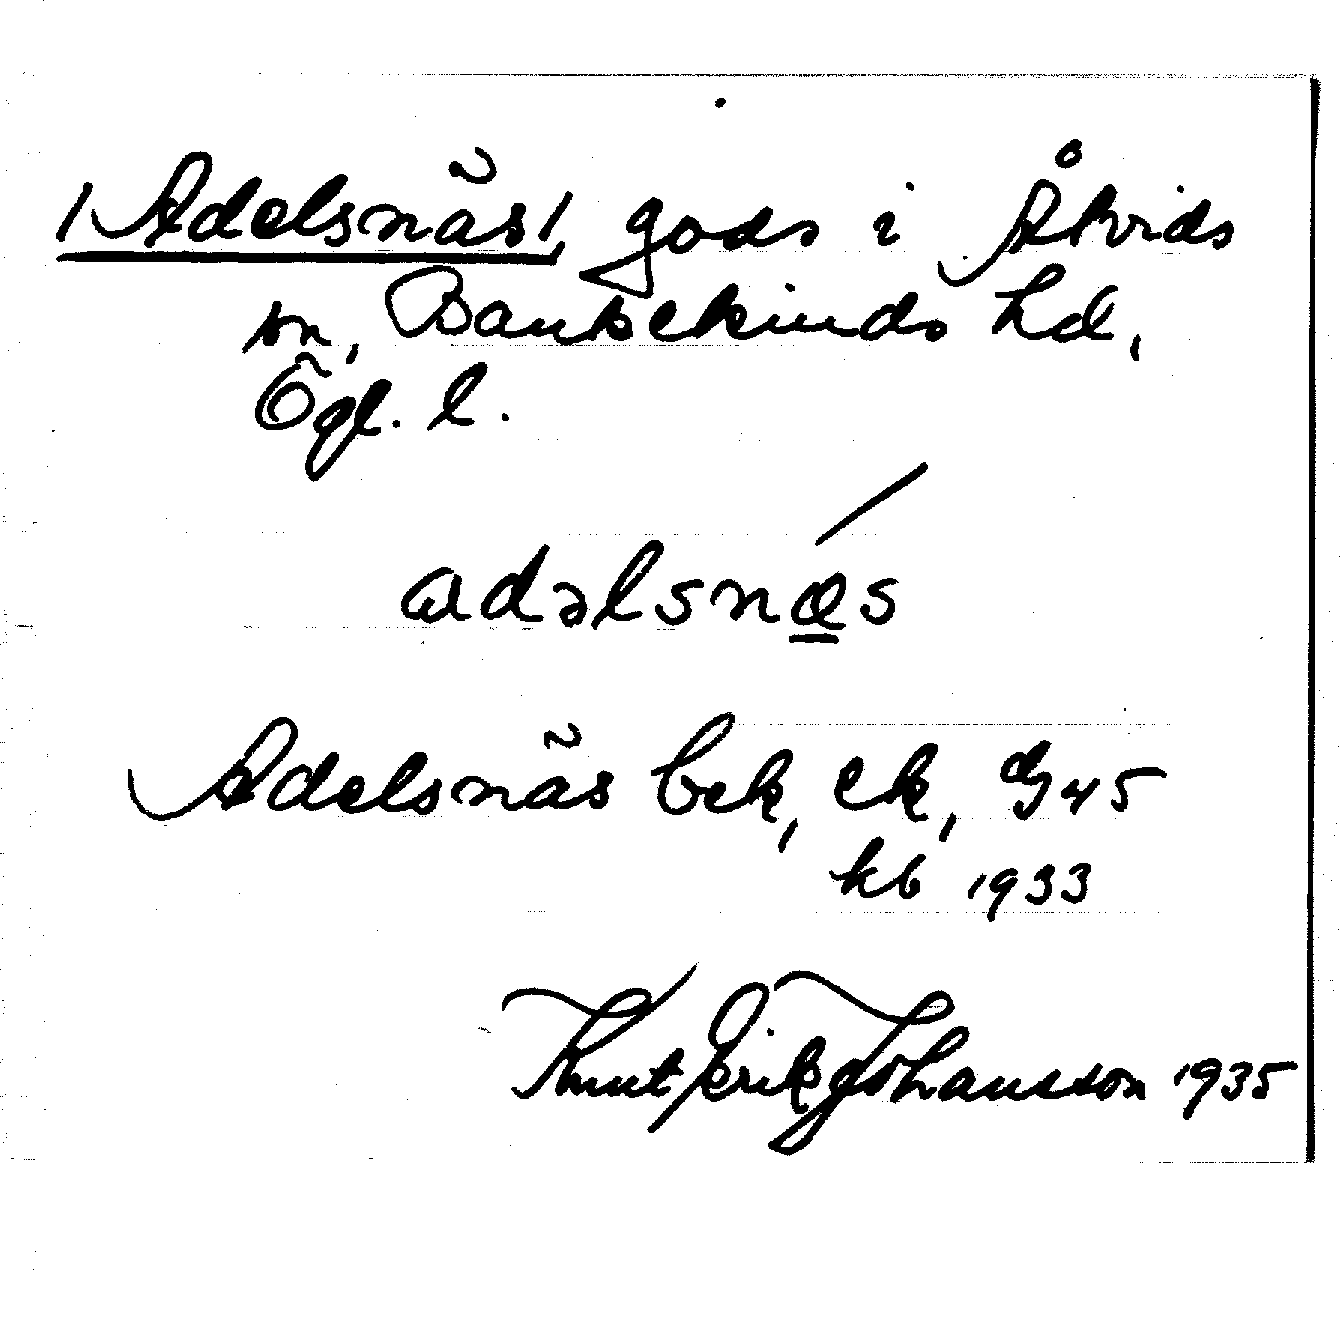 /Adelsnäs/, gods i Åtvids
sn, Bankekinds hd,
Ögl. l.
adəlsnæs
Adelsnäs bek, ek, G45
kb 1933
Knut Erik Johansson 1935